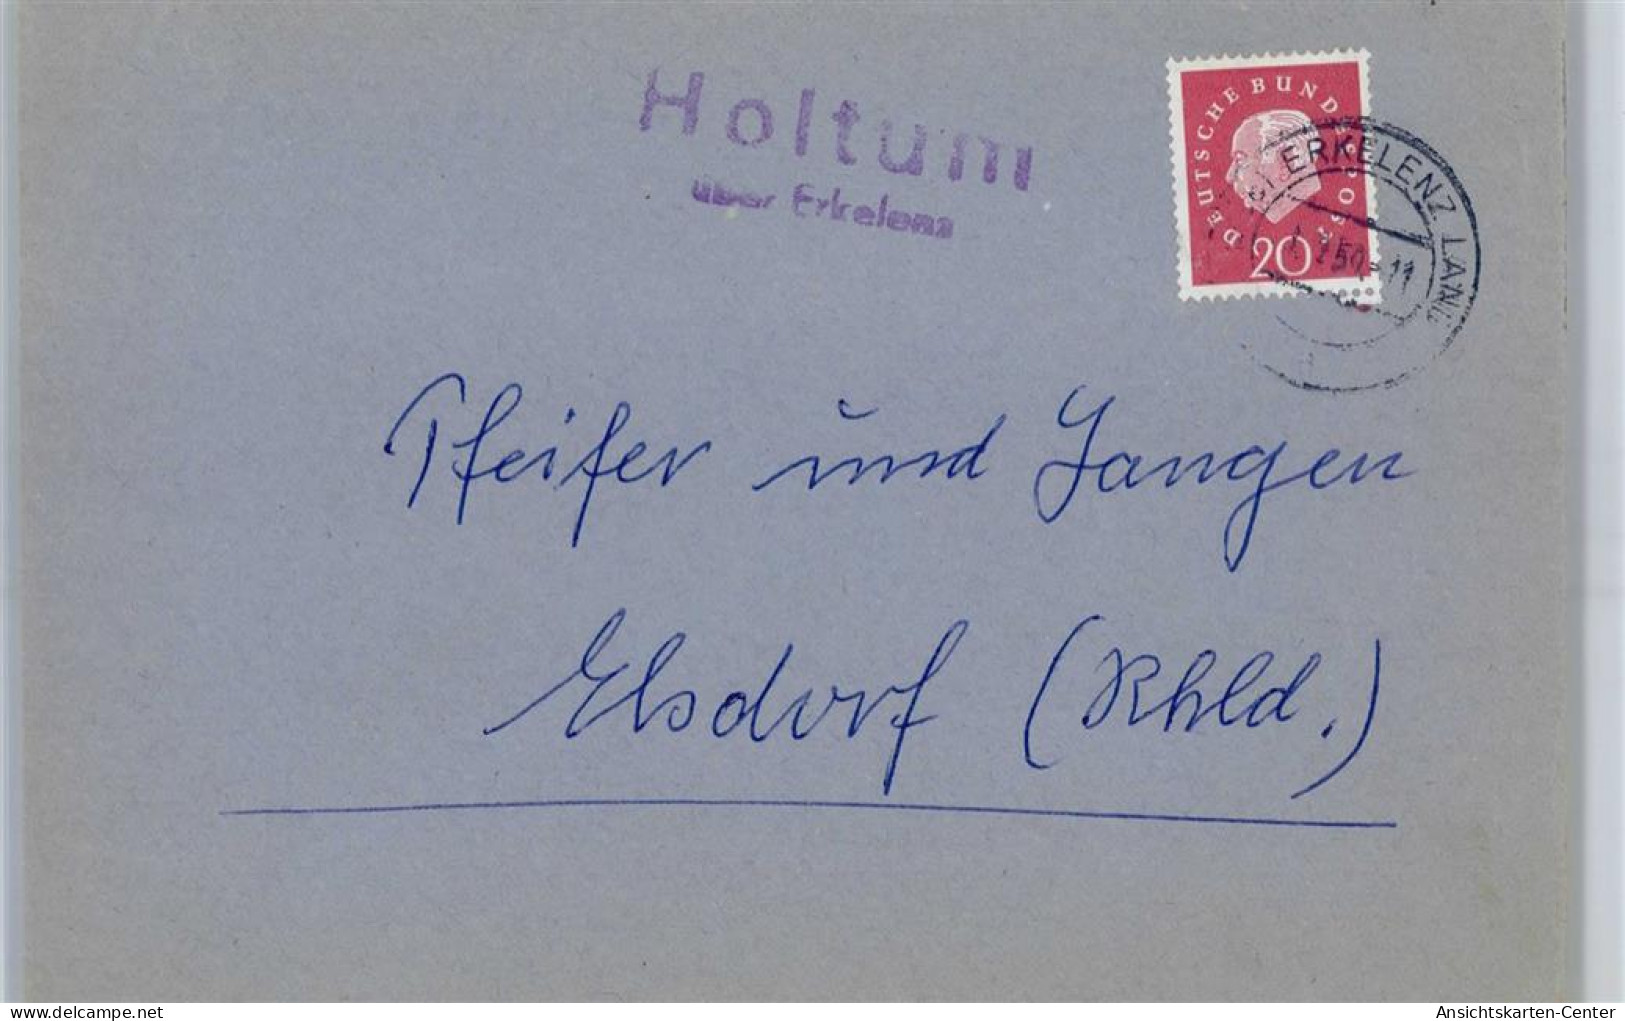 Holtum
über Erkelenz
DEUTSCHE BUNDESPOST
20
ERKELENZ LAND
Pfeifer und Langen
Elsdorf (Rhld.)
delcampe.net
Ansichtskarten-Center